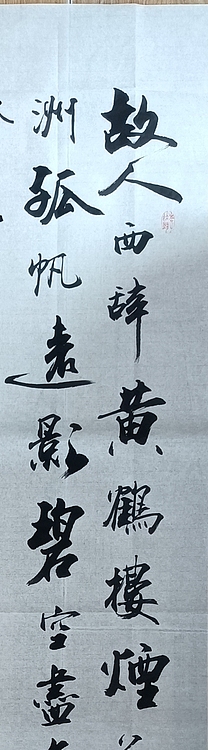 故人西辞黄鶴樓煙
洲孤帆遠影碧空盡